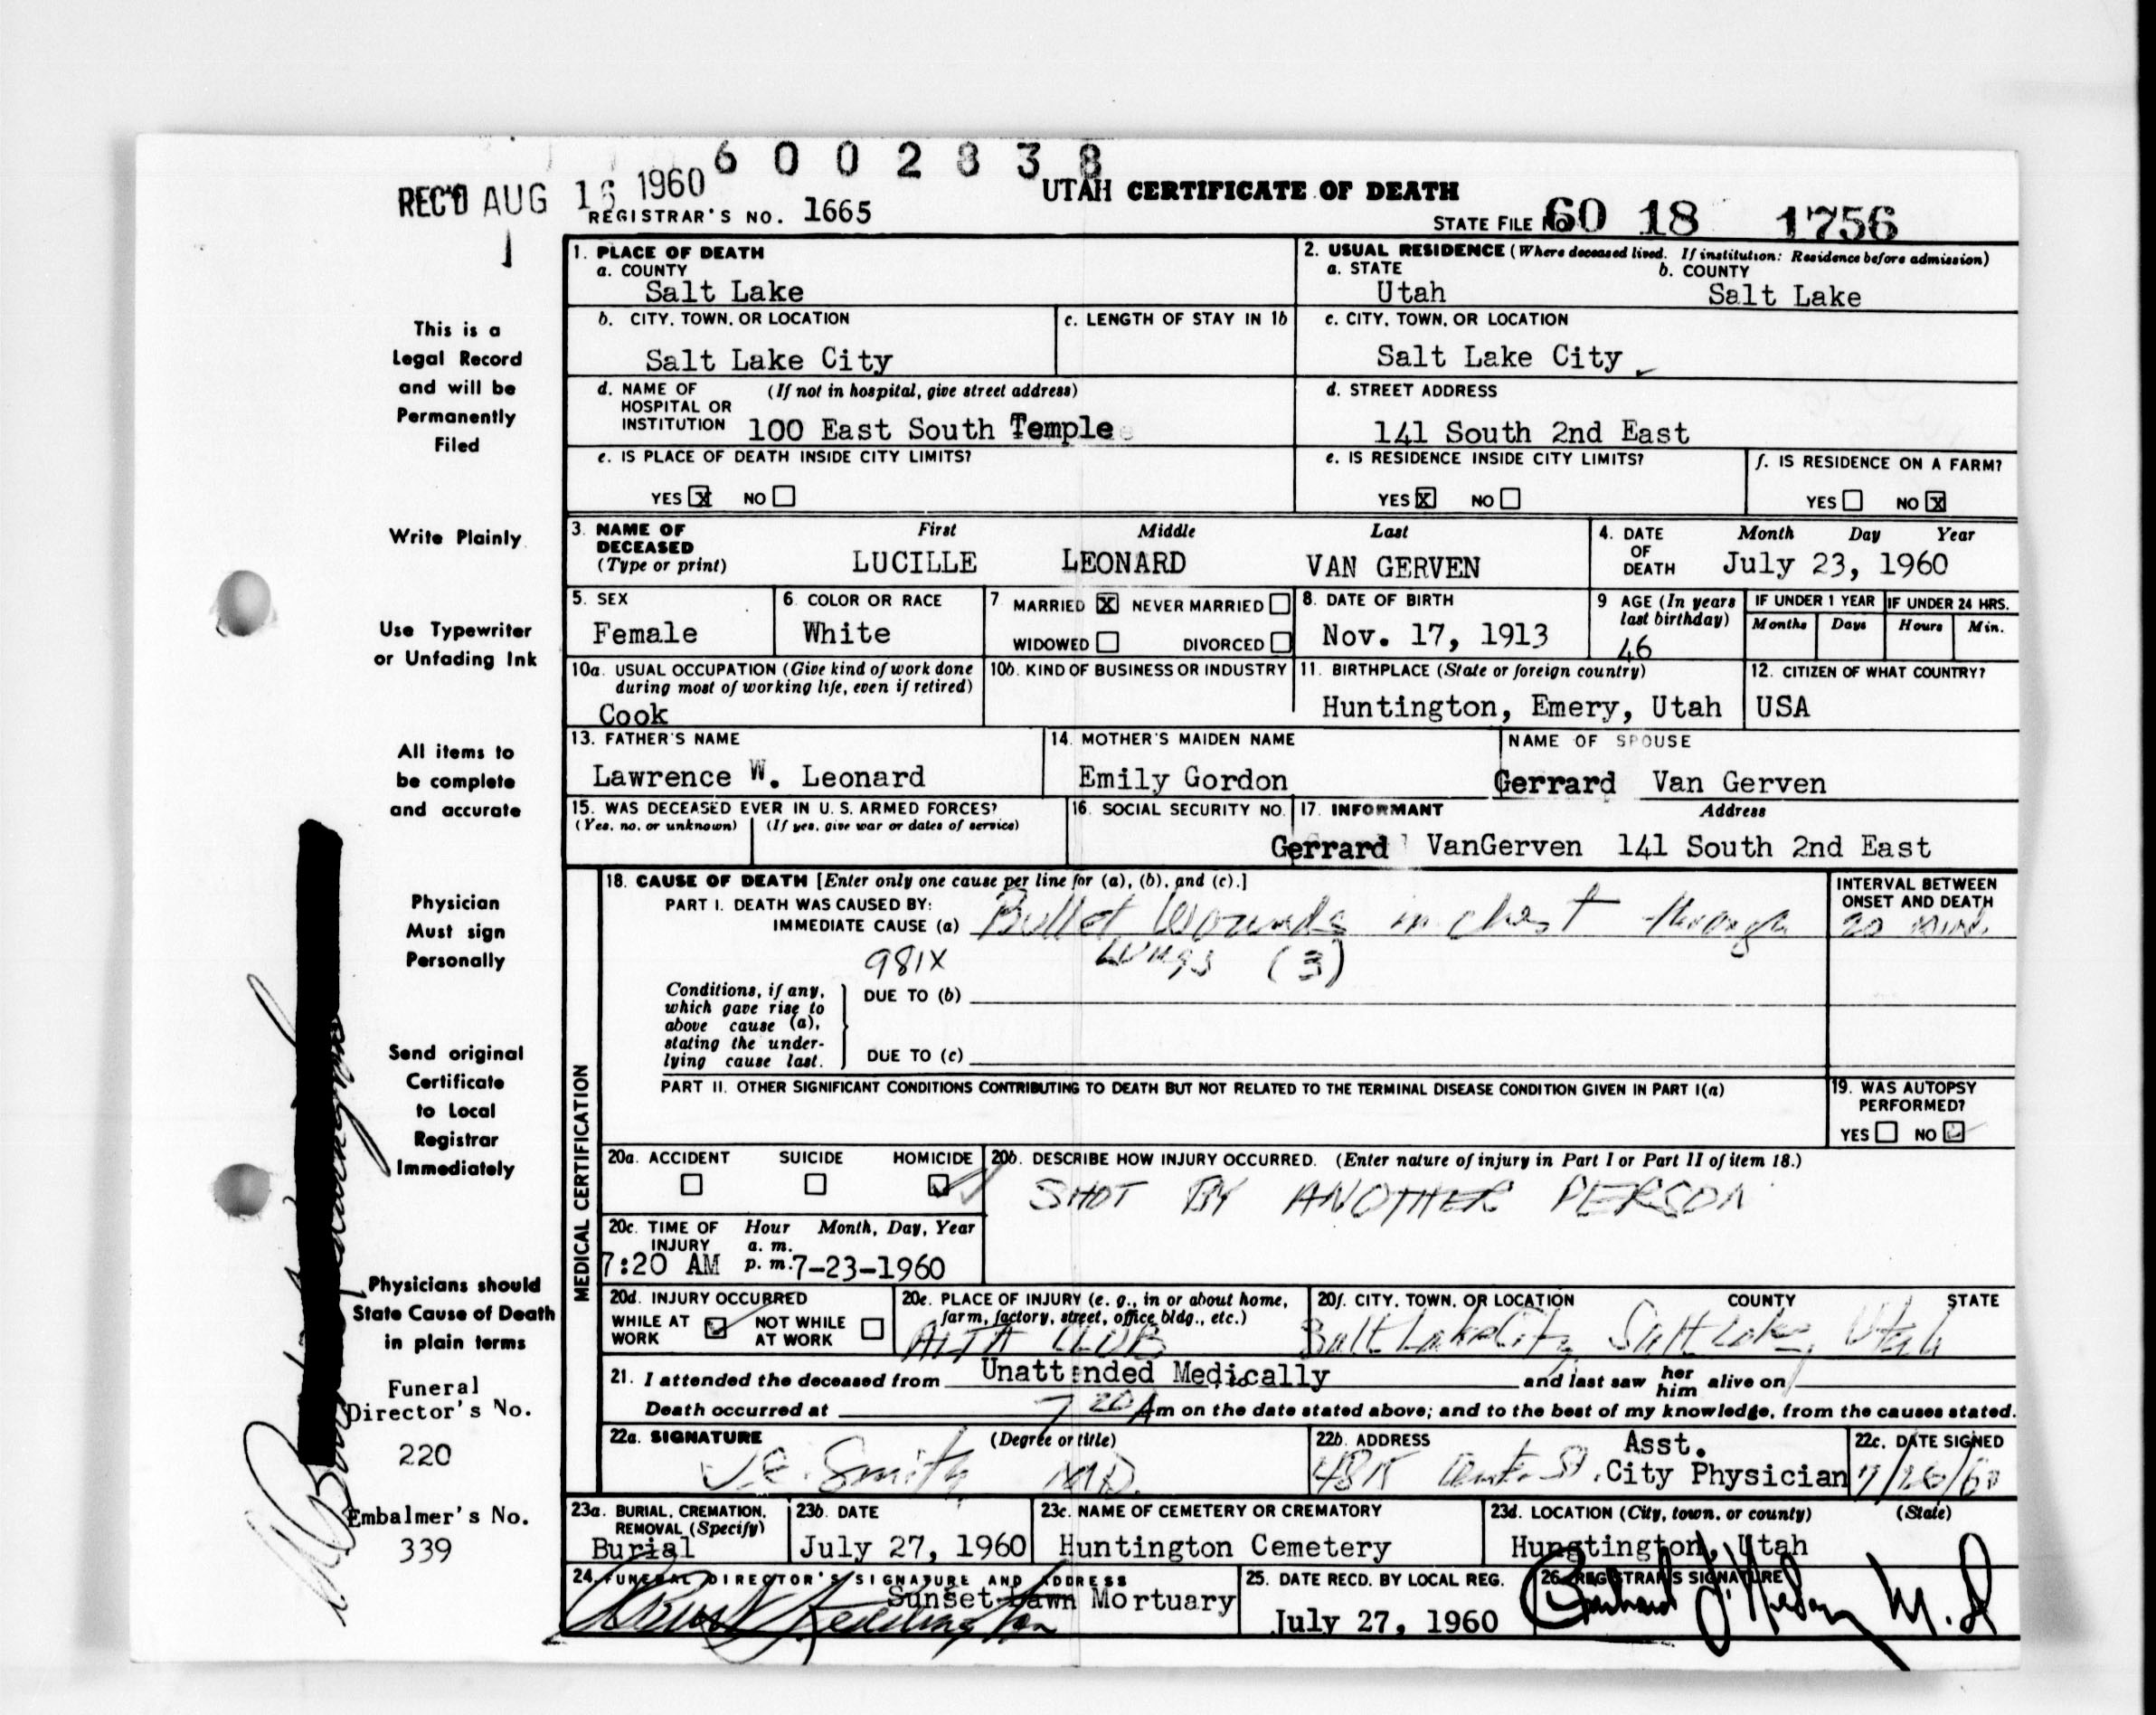 6 0 0 2 8 3 8
REC'D AUG 16 1960
REGISTRAR'S NO. 1665
UTAH CERTIFICATE OF DEATH
STATE FILE NO. 60 18 1756
This is a
Legal Record
and will be
Permanently
Filed
Write Plainly
Use Typewriter
or Unfading Ink
All items to
be complete
and accurate
Physician
Must sign
Personally
Send original
Certificate
to Local
Registrar
Immediately
Physicians should
State Cause of Death
in plain terms
Funeral
Director's No.
220
Embalmer's No.
339
1. PLACE OF DEATH
a. COUNTY
Salt Lake
2. USUAL RESIDENCE (Where deceased lived. If institution: Residence before admission)
a. STATE b. COUNTY
Utah Salt Lake
b. CITY, TOWN, OR LOCATION
Salt Lake City
c. LENGTH OF STAY IN 1b
c. CITY, TOWN, OR LOCATION
Salt Lake City
d. NAME OF (If not in hospital, give street address)
HOSPITAL OR
INSTITUTION 100 East South Temple
d. STREET ADDRESS
141 South 2nd East
e. IS PLACE OF DEATH INSIDE CITY LIMITS?
YES X NO
e. IS RESIDENCE INSIDE CITY LIMITS?
YES X NO
f. IS RESIDENCE ON A FARM?
YES NO X
3. NAME OF First Middle Last
DECEASED
(Type or print) LUCILLE LEONARD VAN GERVEN
4. DATE Month Day Year
OF
DEATH July 23, 1960
5. SEX
Female
6. COLOR OR RACE
White
7 MARRIED X NEVER MARRIED
WIDOWED DIVORCED
8. DATE OF BIRTH
Nov. 17, 1913
9 AGE (In years
last birthday)
46
IF UNDER 1 YEAR IF UNDER 24 HRS.
Months Days Hours Min.
10a. USUAL OCCUPATION (Give kind of work done
during most of working life, even if retired)
Cook
10b. KIND OF BUSINESS OR INDUSTRY
11. BIRTHPLACE (State or foreign country)
Huntington, Emery, Utah
12. CITIZEN OF WHAT COUNTRY?
USA
13. FATHER'S NAME
Lawrence W. Leonard
14. MOTHER'S MAIDEN NAME
Emily Gordon
NAME OF SPOUSE
Gerrard Van Gerven
15. WAS DECEASED EVER IN U. S. ARMED FORCES?
(Yes, no, or unknown) (If yes, give war or dates of service)
16. SOCIAL SECURITY NO.
17. INFORMANT Address
Gerrard VanGerven 141 South 2nd East
MEDICAL CERTIFICATION
18. CAUSE OF DEATH [Enter only one cause per line for (a), (b), and (c).]
PART I. DEATH WAS CAUSED BY:
IMMEDIATE CAUSE (a) Bullet Wounds in chest through
981X Lungs (3)
INTERVAL BETWEEN
ONSET AND DEATH
20 min.
Conditions, if any,
which gave rise to
above cause (a),
stating the under-
lying cause last.
DUE TO (b)
DUE TO (c)
PART II. OTHER SIGNIFICANT CONDITIONS CONTRIBUTING TO DEATH BUT NOT RELATED TO THE TERMINAL DISEASE CONDITION GIVEN IN PART I(a)
19. WAS AUTOPSY
PERFORMED?
YES NO
20a. ACCIDENT SUICIDE HOMICIDE
20b. DESCRIBE HOW INJURY OCCURRED. (Enter nature of injury in Part I or Part II of item 18.)
SHOT BY ANOTHER PERSON
20c. TIME OF Hour Month, Day, Year
INJURY a. m.
7:20 AM p. m. 7-23-1960
20d. INJURY OCCURRED
WHILE AT WORK NOT WHILE AT WORK
20e. PLACE OF INJURY (e. g., in or about home,
farm, factory, street, office bldg., etc.)
ALTA CLUB
20f. CITY, TOWN, OR LOCATION COUNTY STATE
Salt Lake City Salt Lake, Utah
21. I attended the deceased from Unattended Medically and last saw her him alive on
Death occurred at 7 20 Am on the date stated above; and to the best of my knowledge, from the causes stated.
22a. SIGNATURE (Degree or title)
Smith MD.
22b. ADDRESS
St. Asst.
City Physician
22c. DATE SIGNED
7/26/60
23a. BURIAL, CREMATION,
REMOVAL (Specify)
Burial
23b. DATE
July 27, 1960
23c. NAME OF CEMETERY OR CREMATORY
Huntington Cemetery
23d. LOCATION (City, town, or county) (State)
Hungtington, Utah
24. FUNERAL DIRECTOR'S SIGNATURE AND ADDRESS
Sunset Lawn Mortuary
25. DATE RECD. BY LOCAL REG.
July 27, 1960
26. REGISTRAR'S SIGNATURE
M.D